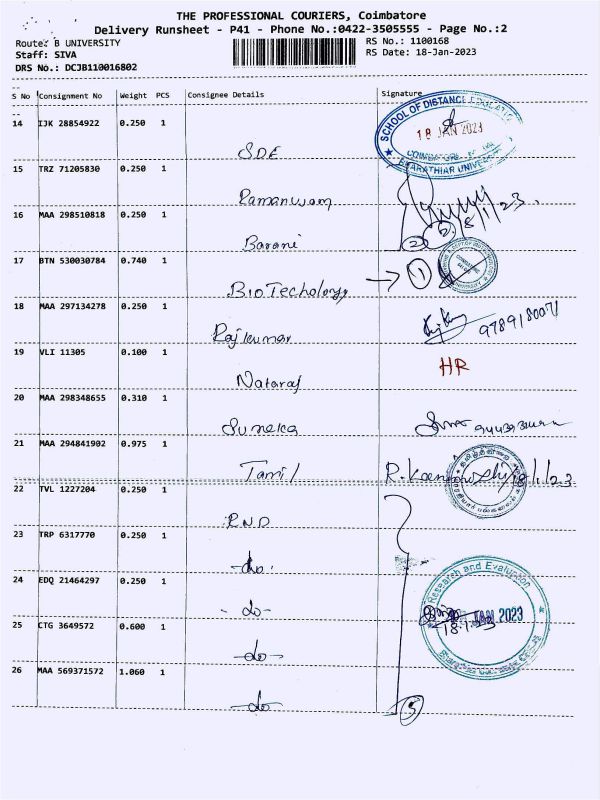 THE PROFESSIONAL COURIERS, Coimbatore
Delivery Runsheet - P41 - Phone No.:0422-3505555 - Page No.:2
Route: B UNIVERSITY
RS No.: 1100168
Staff: SIVA
RS Date: 18-Jan-2023
DRS No.: DCJB110016802
S No Consignment No Weight PCS Consignee Details Signature
14 IJK 28854922 0.250 1
SDE
SCHOOL OF DISTANCE EDUCATION
18 JAN 2023
BHARATHIAR UNIVERSITY
15 TRZ 71205830 0.250 1
Ramanujam
16 MAA 298510818 0.250 1
Barani
② 18/1/23
17 BTN 530030784 0.740 1
BioTechology → ①
18 MAA 297134278 0.250 1
Rajkumar
19 VLI 11305 0.100 1
Nataraj
HR
20 MAA 298348655 0.310 1
Suneka
21 MAA 294841902 0.975 1
Tamil
18/1/23
22 TVL 1227204 0.250 1
RND
23 TRP 6317770 0.250 1
-do-
24 EDQ 21464297 0.250 1
-do-
Research and Evaluation
JAN 2023
25 CTG 3649572 0.600 1
-do-
26 MAA 569371572 1.060 1
-do-
⑤